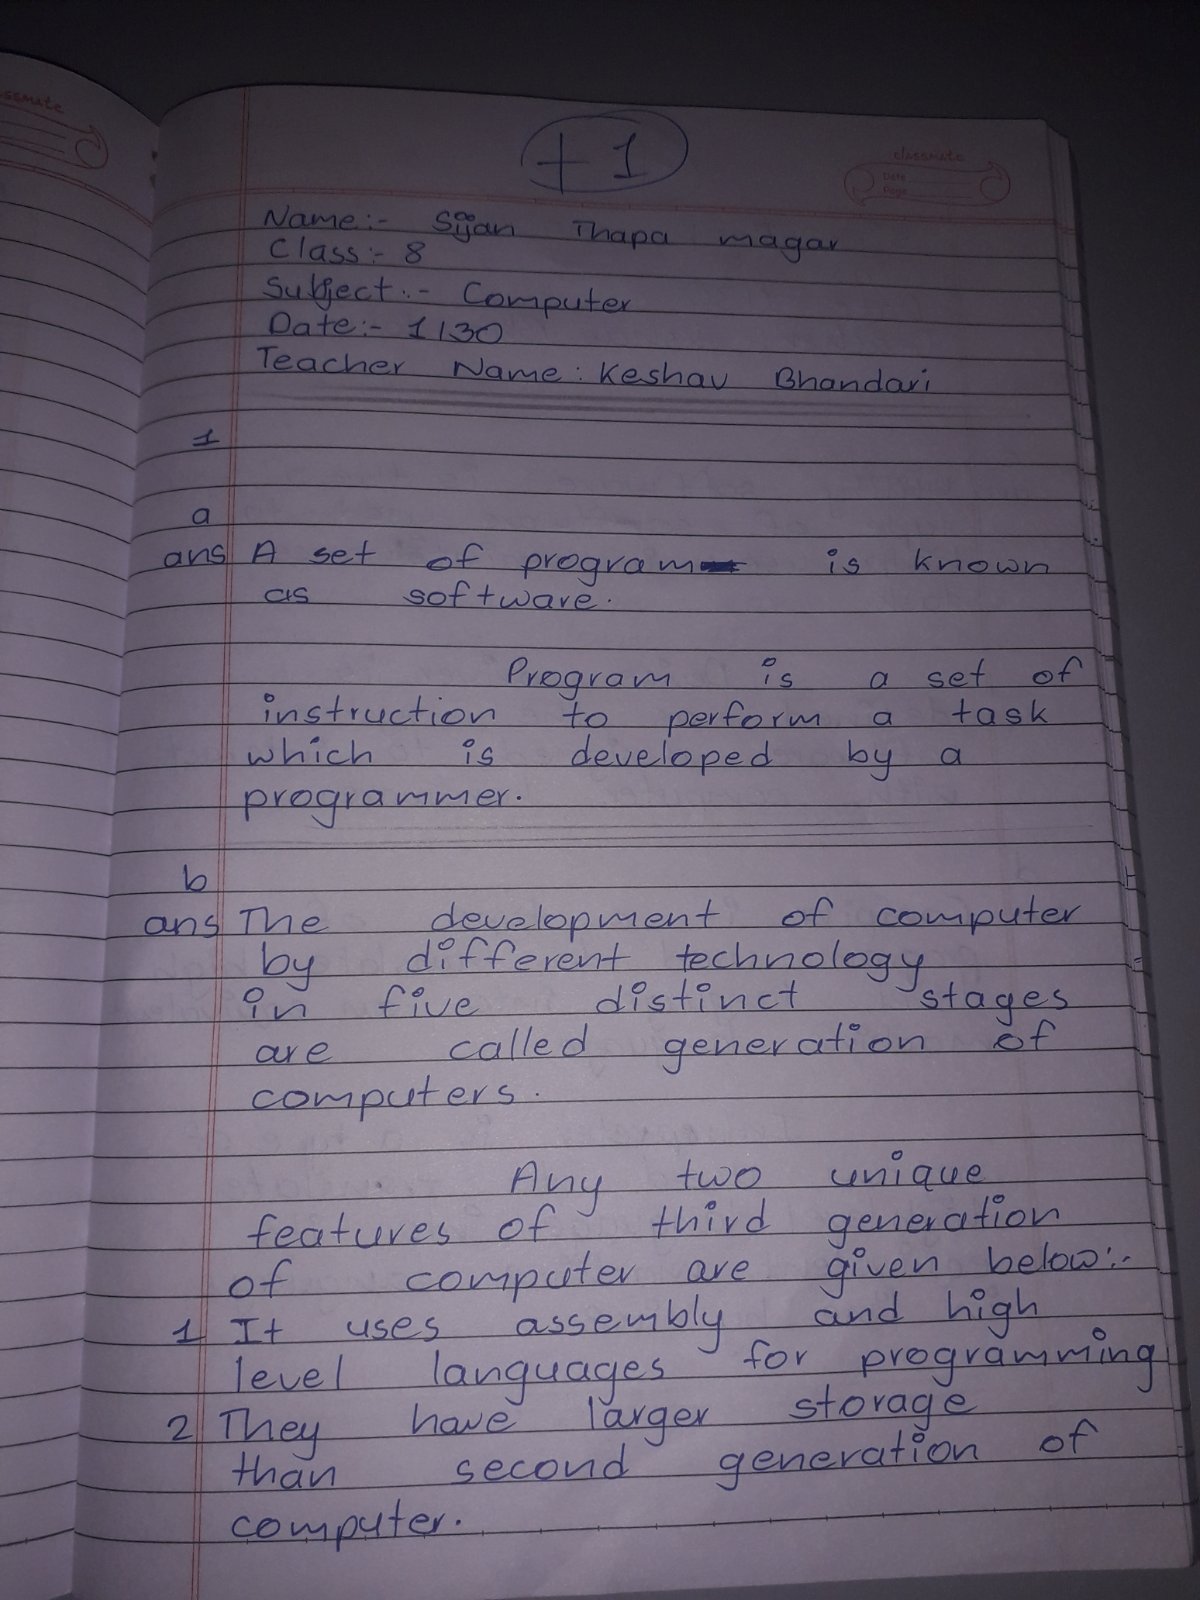 ssmate
+1
classmate
Date
Page
Name:- Sijan Thapa magar
Class:- 8
Subject:- Computer
Date:- 1/30
Teacher Name: Keshav Bhandari
1
a
ans A set of program is known
as software.
Program is a set of
instruction to perform a task
which is developed by a
programmer.
b
ans The development of computer
by different technology
in five distinct stages
are called generation of
computers.
Any two unique
features of third generation
of computer are given below:-
1 It uses assembly and high
level languages for programming
2 They have larger storage
than second generation of
computer.